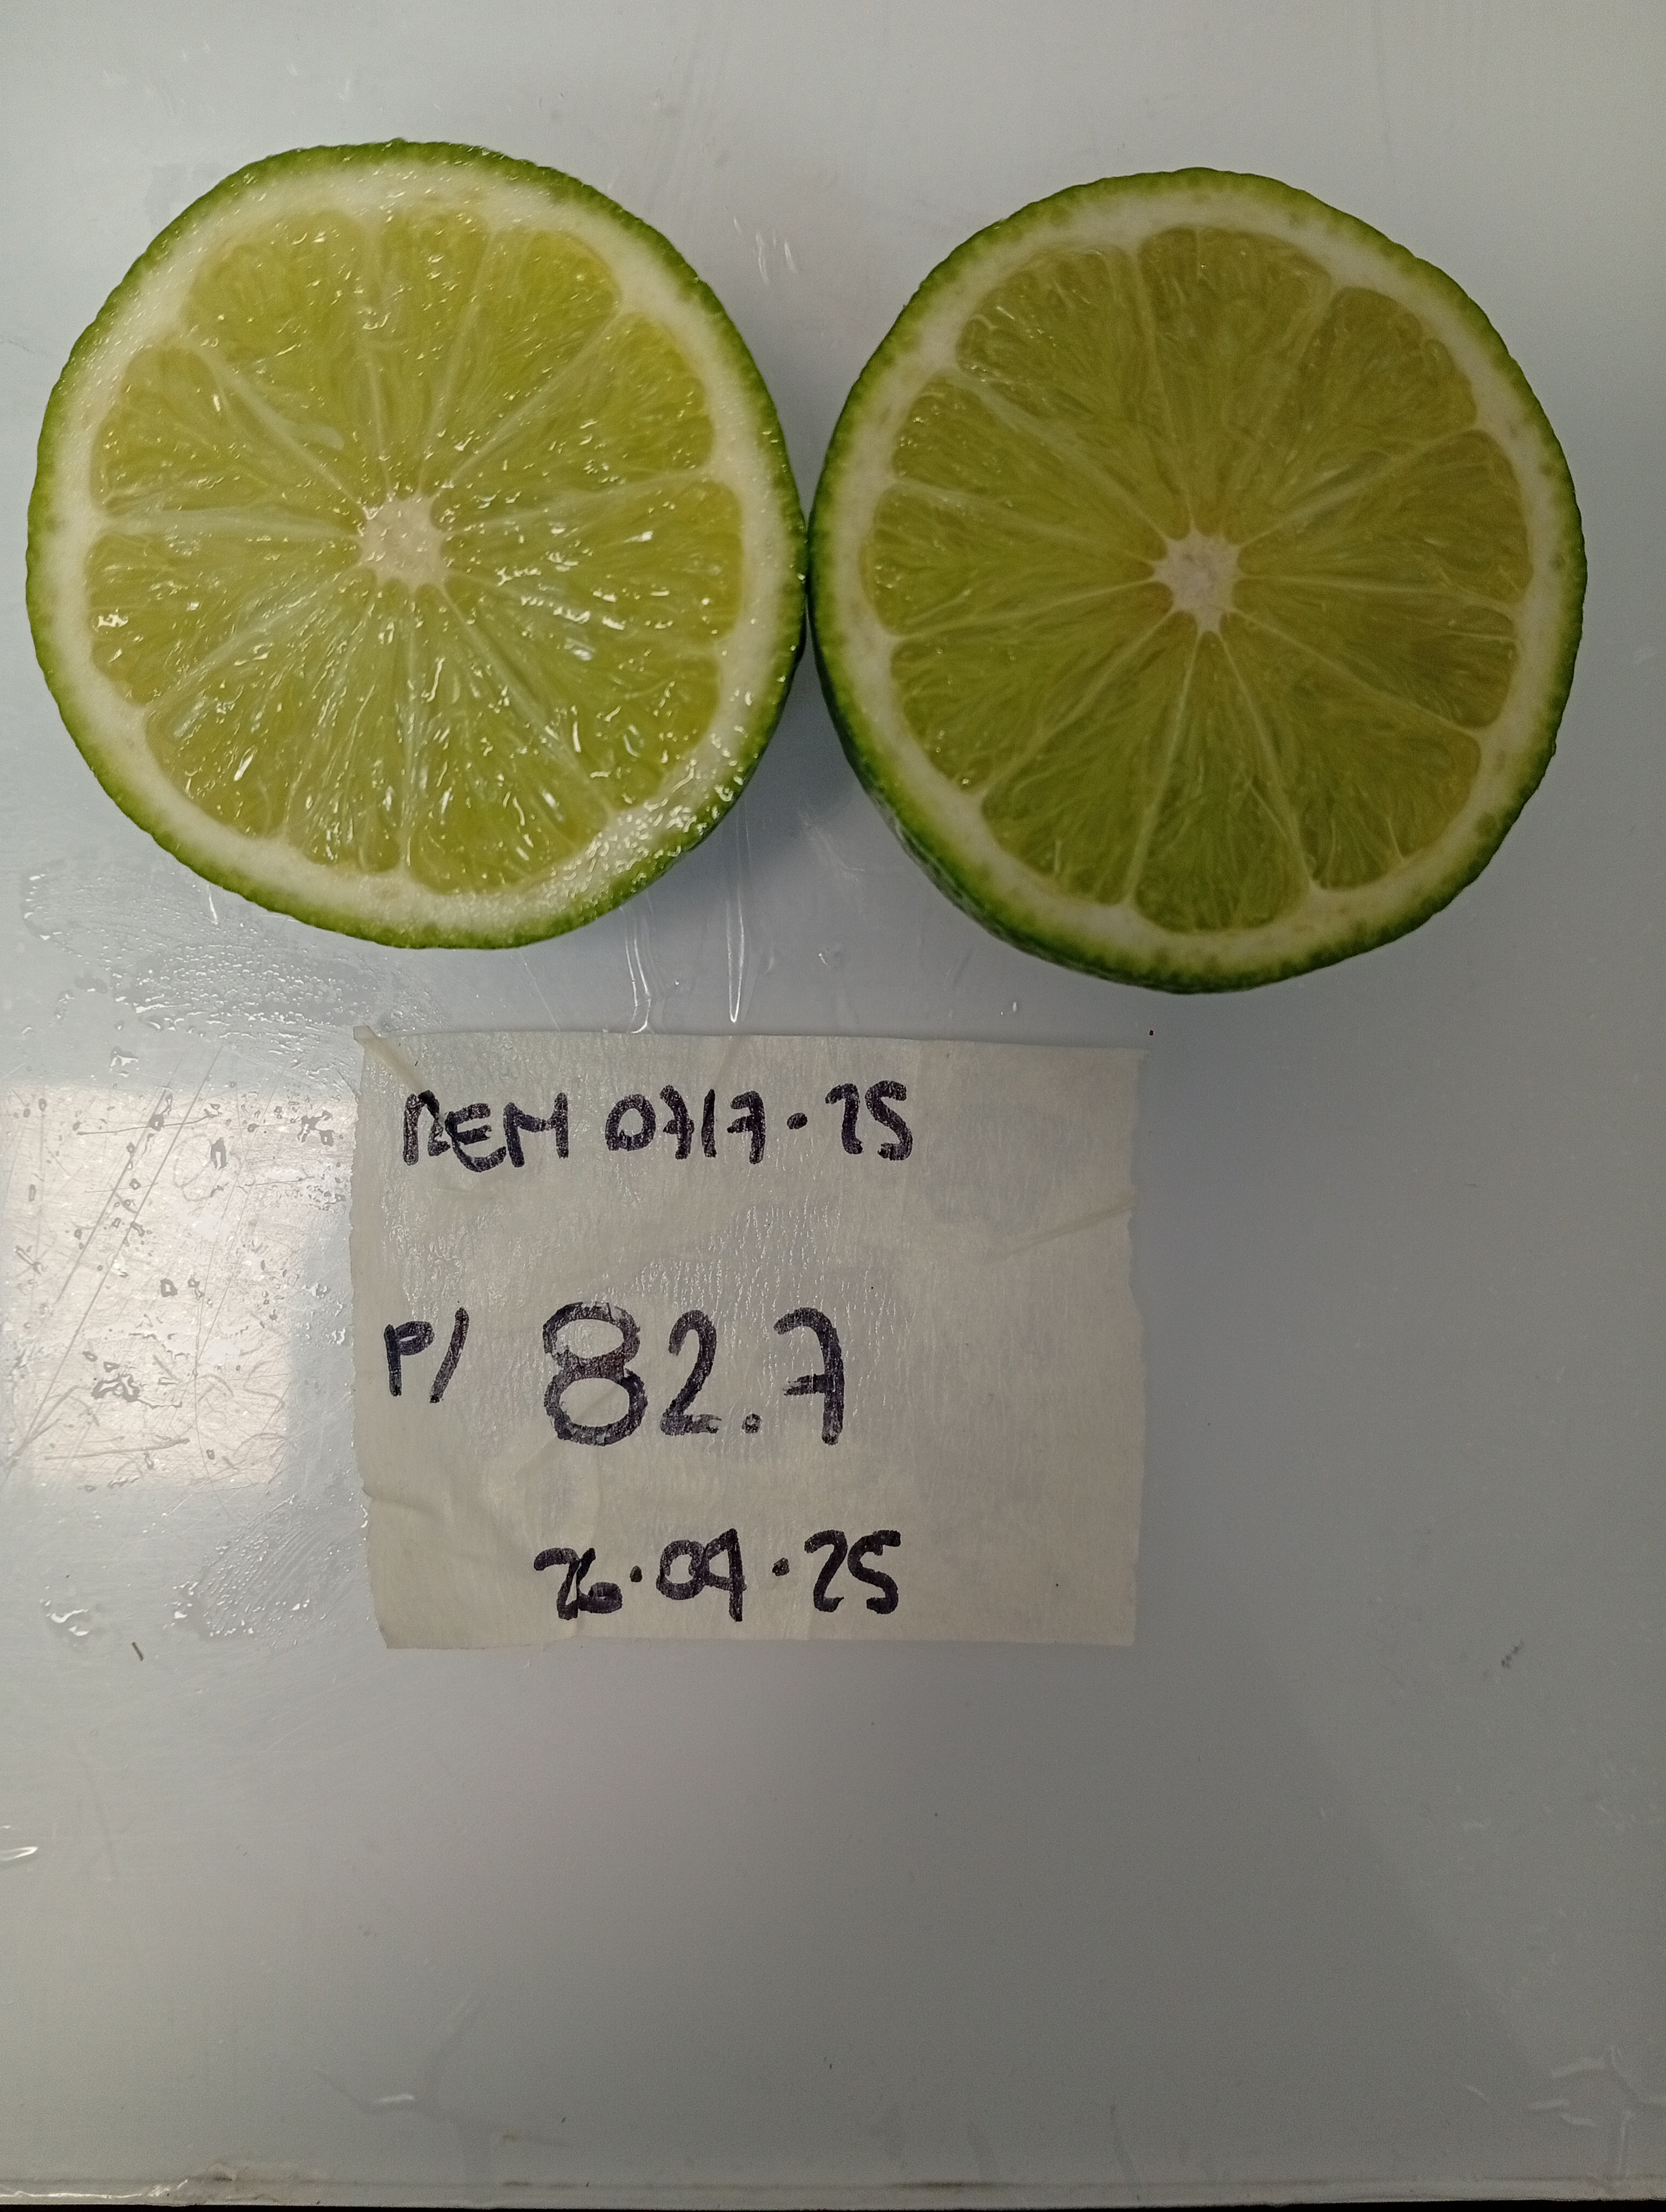 REM 0717.25
P/ 82.7
26.09.25